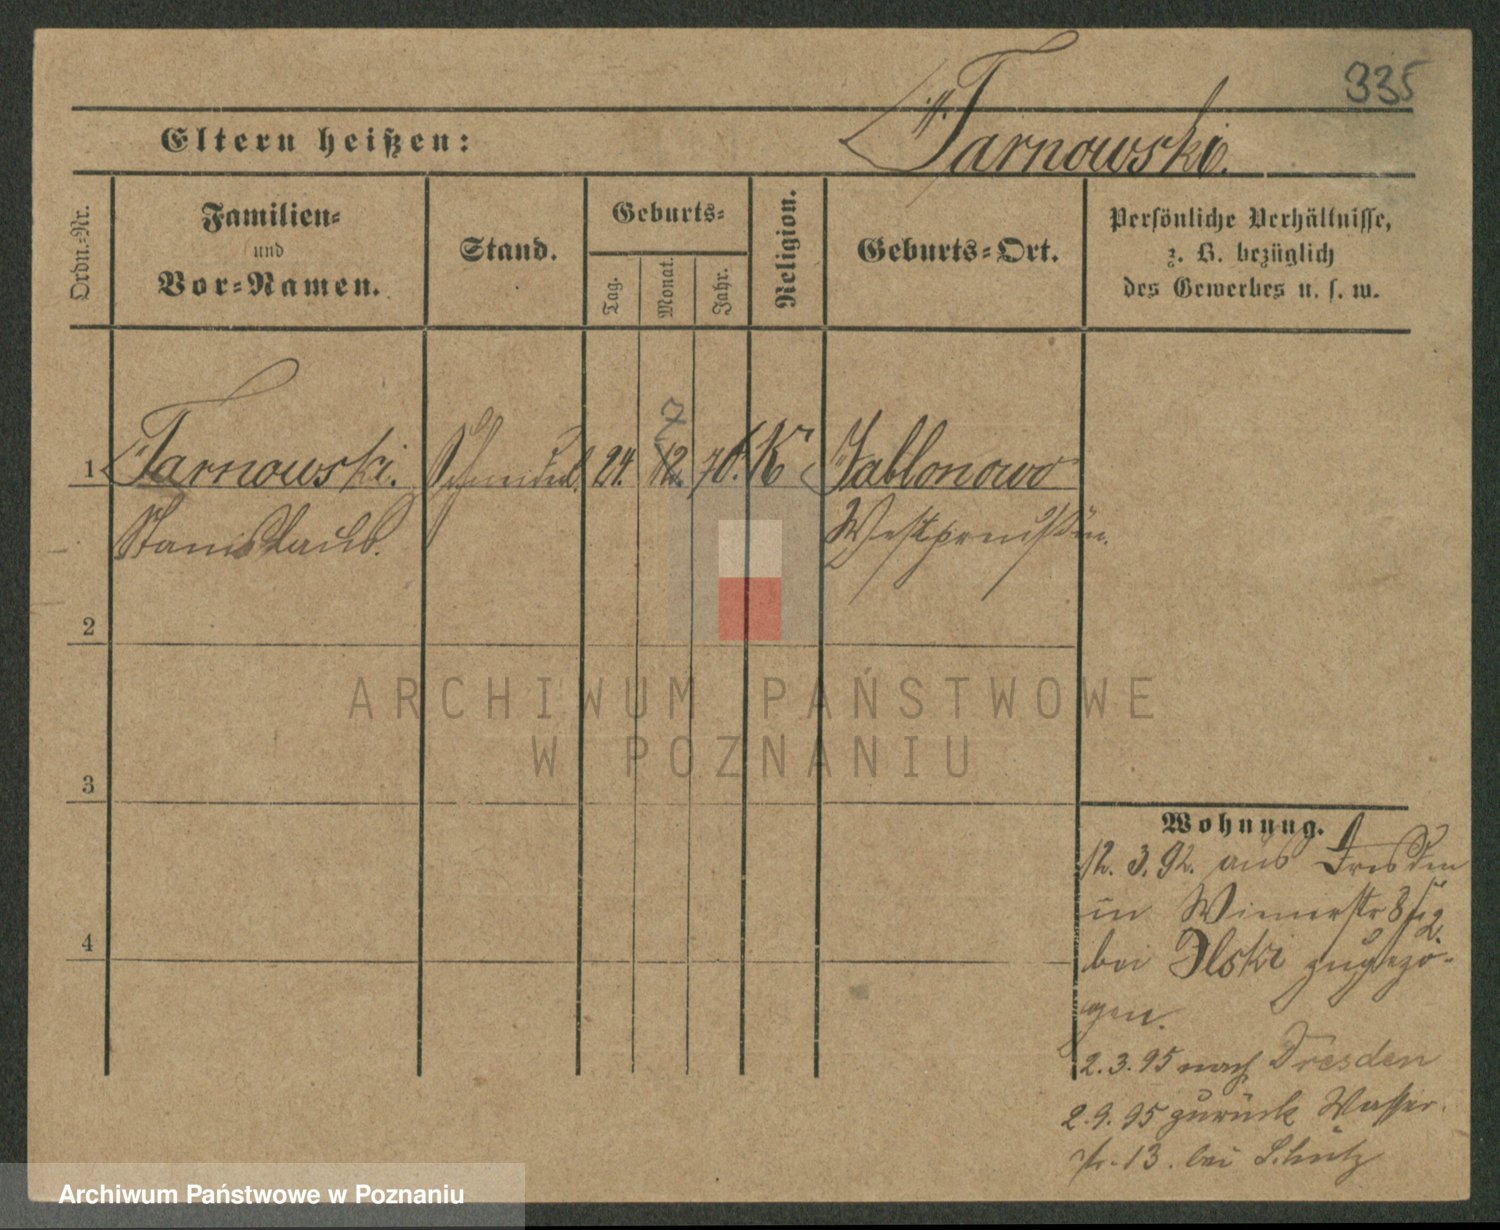 335
Tarnowski.
Eltern heißen:
Ordn.-Nr.
Familien-
und
Vor-Namen.
Stand.
Geburts-
Tag.
Monat.
Jahr.
Religion.
Geburts-Ort.
Persönliche Verhältnisse,
z. B. bezüglich
des Gewerbes u. s. w.
7
1 Tarnowski. 24. 12. 70. K Jablonowo
Stanislaus. Westpreußen.
2
3
4
Wohnung.
12. 3. 92. aus Dresden
in Wienerstr 8
bei Ilski zugezo-
gen.
2.3.95 nach Dresden
2.9.95 zurück Wasser-
str. 13. bei Schütz
ARCHIWUM PAŃSTWOWE
W POZNANIU
Archiwum Państwowe w Poznaniu